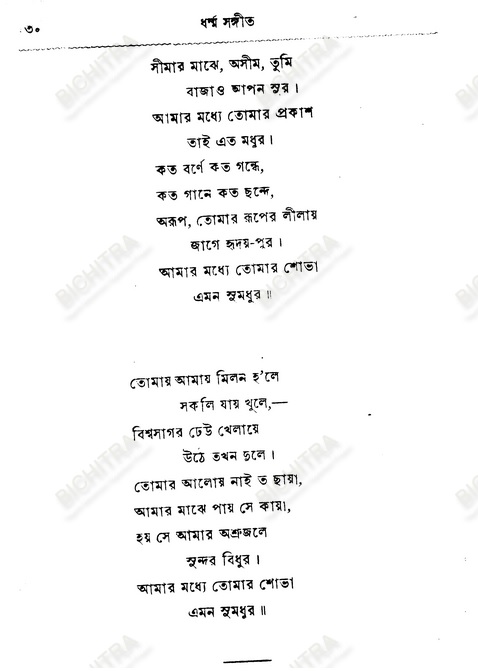 ৩০
ধর্ম্ম সঙ্গীত
সীমার মাঝে, অসীম, তুমি
বাজাও আপন সুর।
আমার মধ্যে তোমার প্রকাশ
তাই এত মধুর।
কত বর্ণে কত গন্ধে,
কত গানে কত ছন্দে,
অরূপ, তোমার রূপের লীলায়
জাগে হৃদয়-পুর।
আমার মধ্যে তোমার শোভা
এমন সুমধুর॥
তোমায় আমায় মিলন হ'লে
সকলি যায় খুলে,—
বিশ্বসাগর ঢেউ খেলায়ে
উঠে তখন দুলে।
তোমার আলোয় নাই ত ছায়া,
আমার মাঝে পায় সে কায়া,
হয় সে আমার অশ্রুজলে
সুন্দর বিধুর।
আমার মধ্যে তোমার শোভা
এমন সুমধুর॥
BICHITRA
BICHITRA
BICHITRA
BICHITRA
BICHITRA
BICHITRA
BICHITRA
BICHITRA
BICHITRA
BICHITRA